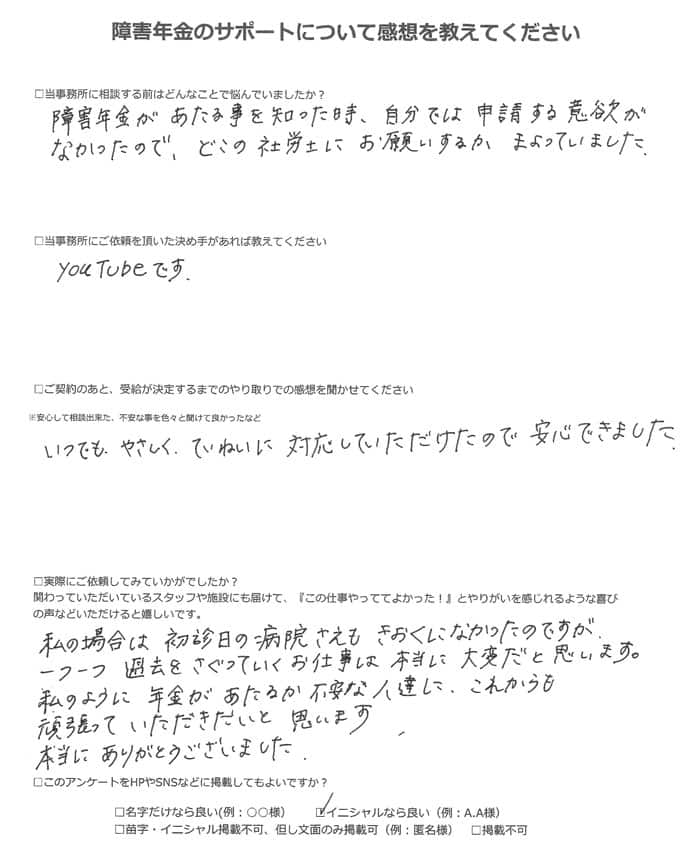 障害年金のサポートについて感想を教えてください
□当事務所に相談する前はどんなことで悩んでいましたか？
障害年金が あたる事を知った時、自分では 申請する意欲が
なかったので、どこの 社労士に お願いするか、まよっていました.
□当事務所にご依頼を頂いた決め手があれば教えてください
YouTubeです.
□ご契約のあと、受給が決定するまでのやり取りでの感想を聞かせてください
※安心して相談出来た、不安な事を色々と聞けて良かったなど
いつでも、やさしく、ていねいに 対応していただけたので 安心できました.
□実際にご依頼してみていかがでしたか？
関わっていただいているスタッフや施設にも届けて、『この仕事やっててよかった！』とやりがいを感じれるような喜び
の声などいただけると嬉しいです。
私の場合は 初診日の病院さえも きおくになかったのですが、
一つ一つ 過去をさぐっていくお仕事は 本当に 大変だと思います。
私のように 年金が あたるか不安な人達に、これからも
頑張って いただきだいと 思います
本当に ありがとうございました.
□このアンケートをHPやSNSなどに掲載してもよいですか？
□名字だけなら良い(例：〇〇様） ☑イニシャルなら良い（例：A.A様）
□苗字・イニシャル掲載不可、但し文面のみ掲載可（例：匿名様） □掲載不可